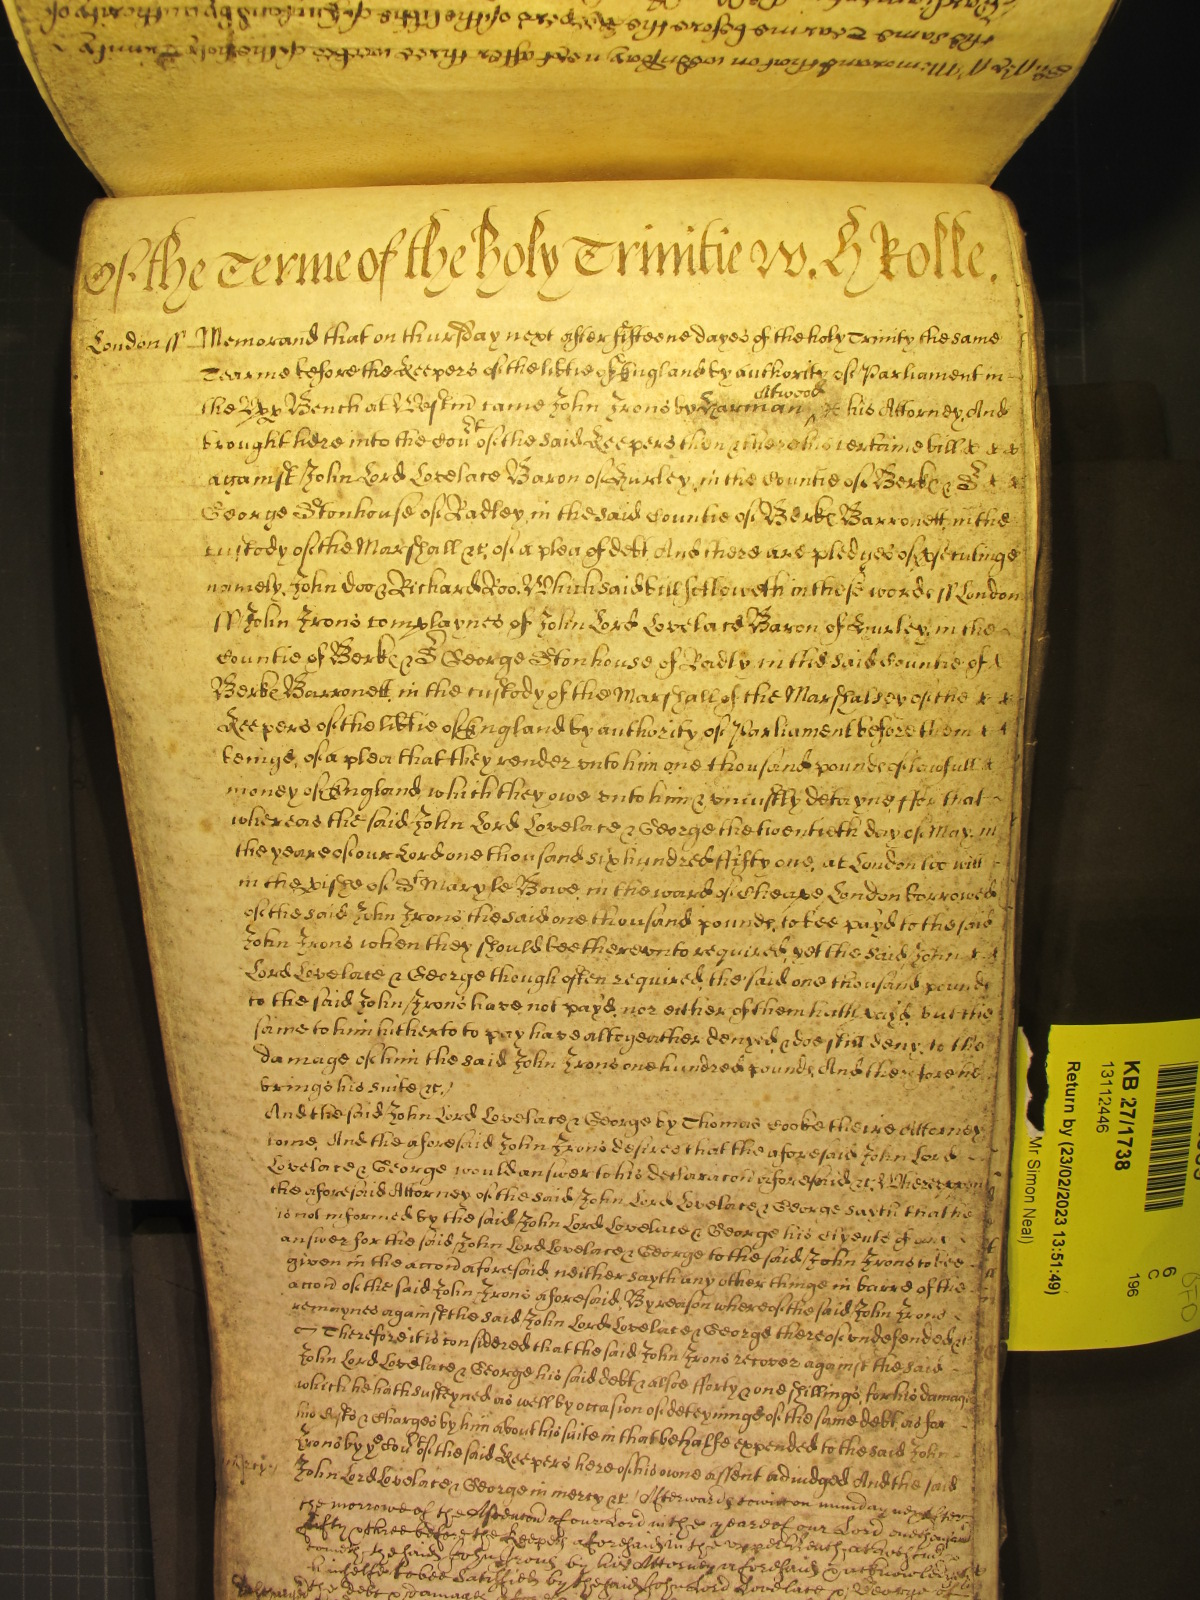 Of the Terme of the holy Trinitie w. H Rolle.
London ss Memorand that on thursday next after fifteene dayes of the holy Trinity the same
Tearme before the Keepers of the libtie of England by authority of Parliament in
the Upp Bench at Westm came John Irons by Harman Atwood his Attorney, And
brought here into the Cout of the said Keepers then & there his certaine bill
against John Lord Lovelace Baron of Hurley, in the Countie of Berk & Sr
George Stonhouse of Radley, in the said Countie of Berk Barronett, in the
custody of the Marshall &c. of a plea of debt And there are pledges of prosecutinge
namely, John doo & Richard Roo. Which said bill followeth in these words ss London
ss John Irons complaynes of John Lord Lovelace Baron of Hurley, in the
Countie of Berk & Sr George Stonhouse of Radly in the said Countie of
Berk Barronett, in the custody of the Marshall of the Marshalsey of the
Keepers of the libtie of England by authority of Parliament before them
beinge, of a plea that they render unto him one thousand pounds of lawfull
money of England which they owe unto him & uniustly detayne, ffor that
whereas the said John Lord Lovelace & George the twentieth day of May, in
the yeare of our Lord one thousand six hundred fifty one, at London to witt
in the pishe of St Mary le Bowe, in the ward of Cheape London borrowed
of the said John Irons the said one thousand pounds, to bee payd to the said
John Irons when they should bee thereunto required, yet the said John
Lord Lovelace & George though often required, the said one thousand pounds
to the said John Irons have not payd, nor either of them hath payd, but the
same to him hitherto to pay have altogeather denyed, & doe still deny, to the
damage of him the said John Irons one hundred pounds, And therefore he
brings his suite &c.
And the said John Lord Lovelace & George by Thomas Cooke theire Attorney
come, And the aforesaid John Irons desires that the aforesaid John Lord
Lovelace & George would answer to his declaracon aforesaid &c. Whereupon
the aforesaid Attorney of the said John Lord Lovelace & George sayth that he
is not informed by the said John Lord Lovelace & George his clyents of any
answer for the said John Lord Lovelace & George to the said John Irons to bee
given in the accon aforesaid, neither sayth any other thinge in barre of the
accon of the said John Irons aforesaid, By reason whereof the said John Irons
remaynes against the said John Lord Lovelace & George thereof undefended &c
Therefore it is considered that the said John Irons recover against the said
John Lord Lovelace & George his said debt & alsoe fforty & one shillings, for his damages
which he hath susteyned as well by occasion of deteyninge of the same debt, as for
his costs & charges by him about his suite in that behalfe expended to the said John
Irons by ye Cout of the said Keepers here of his owne assent adiudged And the said
mercy John Lord Lovelace & George in mercy &c. Afterwards to witt on munday next after
the morrowe of the Ascencon of our Lord in the yeare of our Lord one thousand
fifty & three before the Keepers aforesaid in the upper Bench at Westmr
cometh the said John Irons by his Attorney aforesaid & acknowledgeth
himselfe to bee satisfied by the said John Lord Lovelace & George of
the debt & damages
KB 27/1738
13112446
Return by (23/02/2023 13:51:49)
Mr Simon Neal)
6
C
196